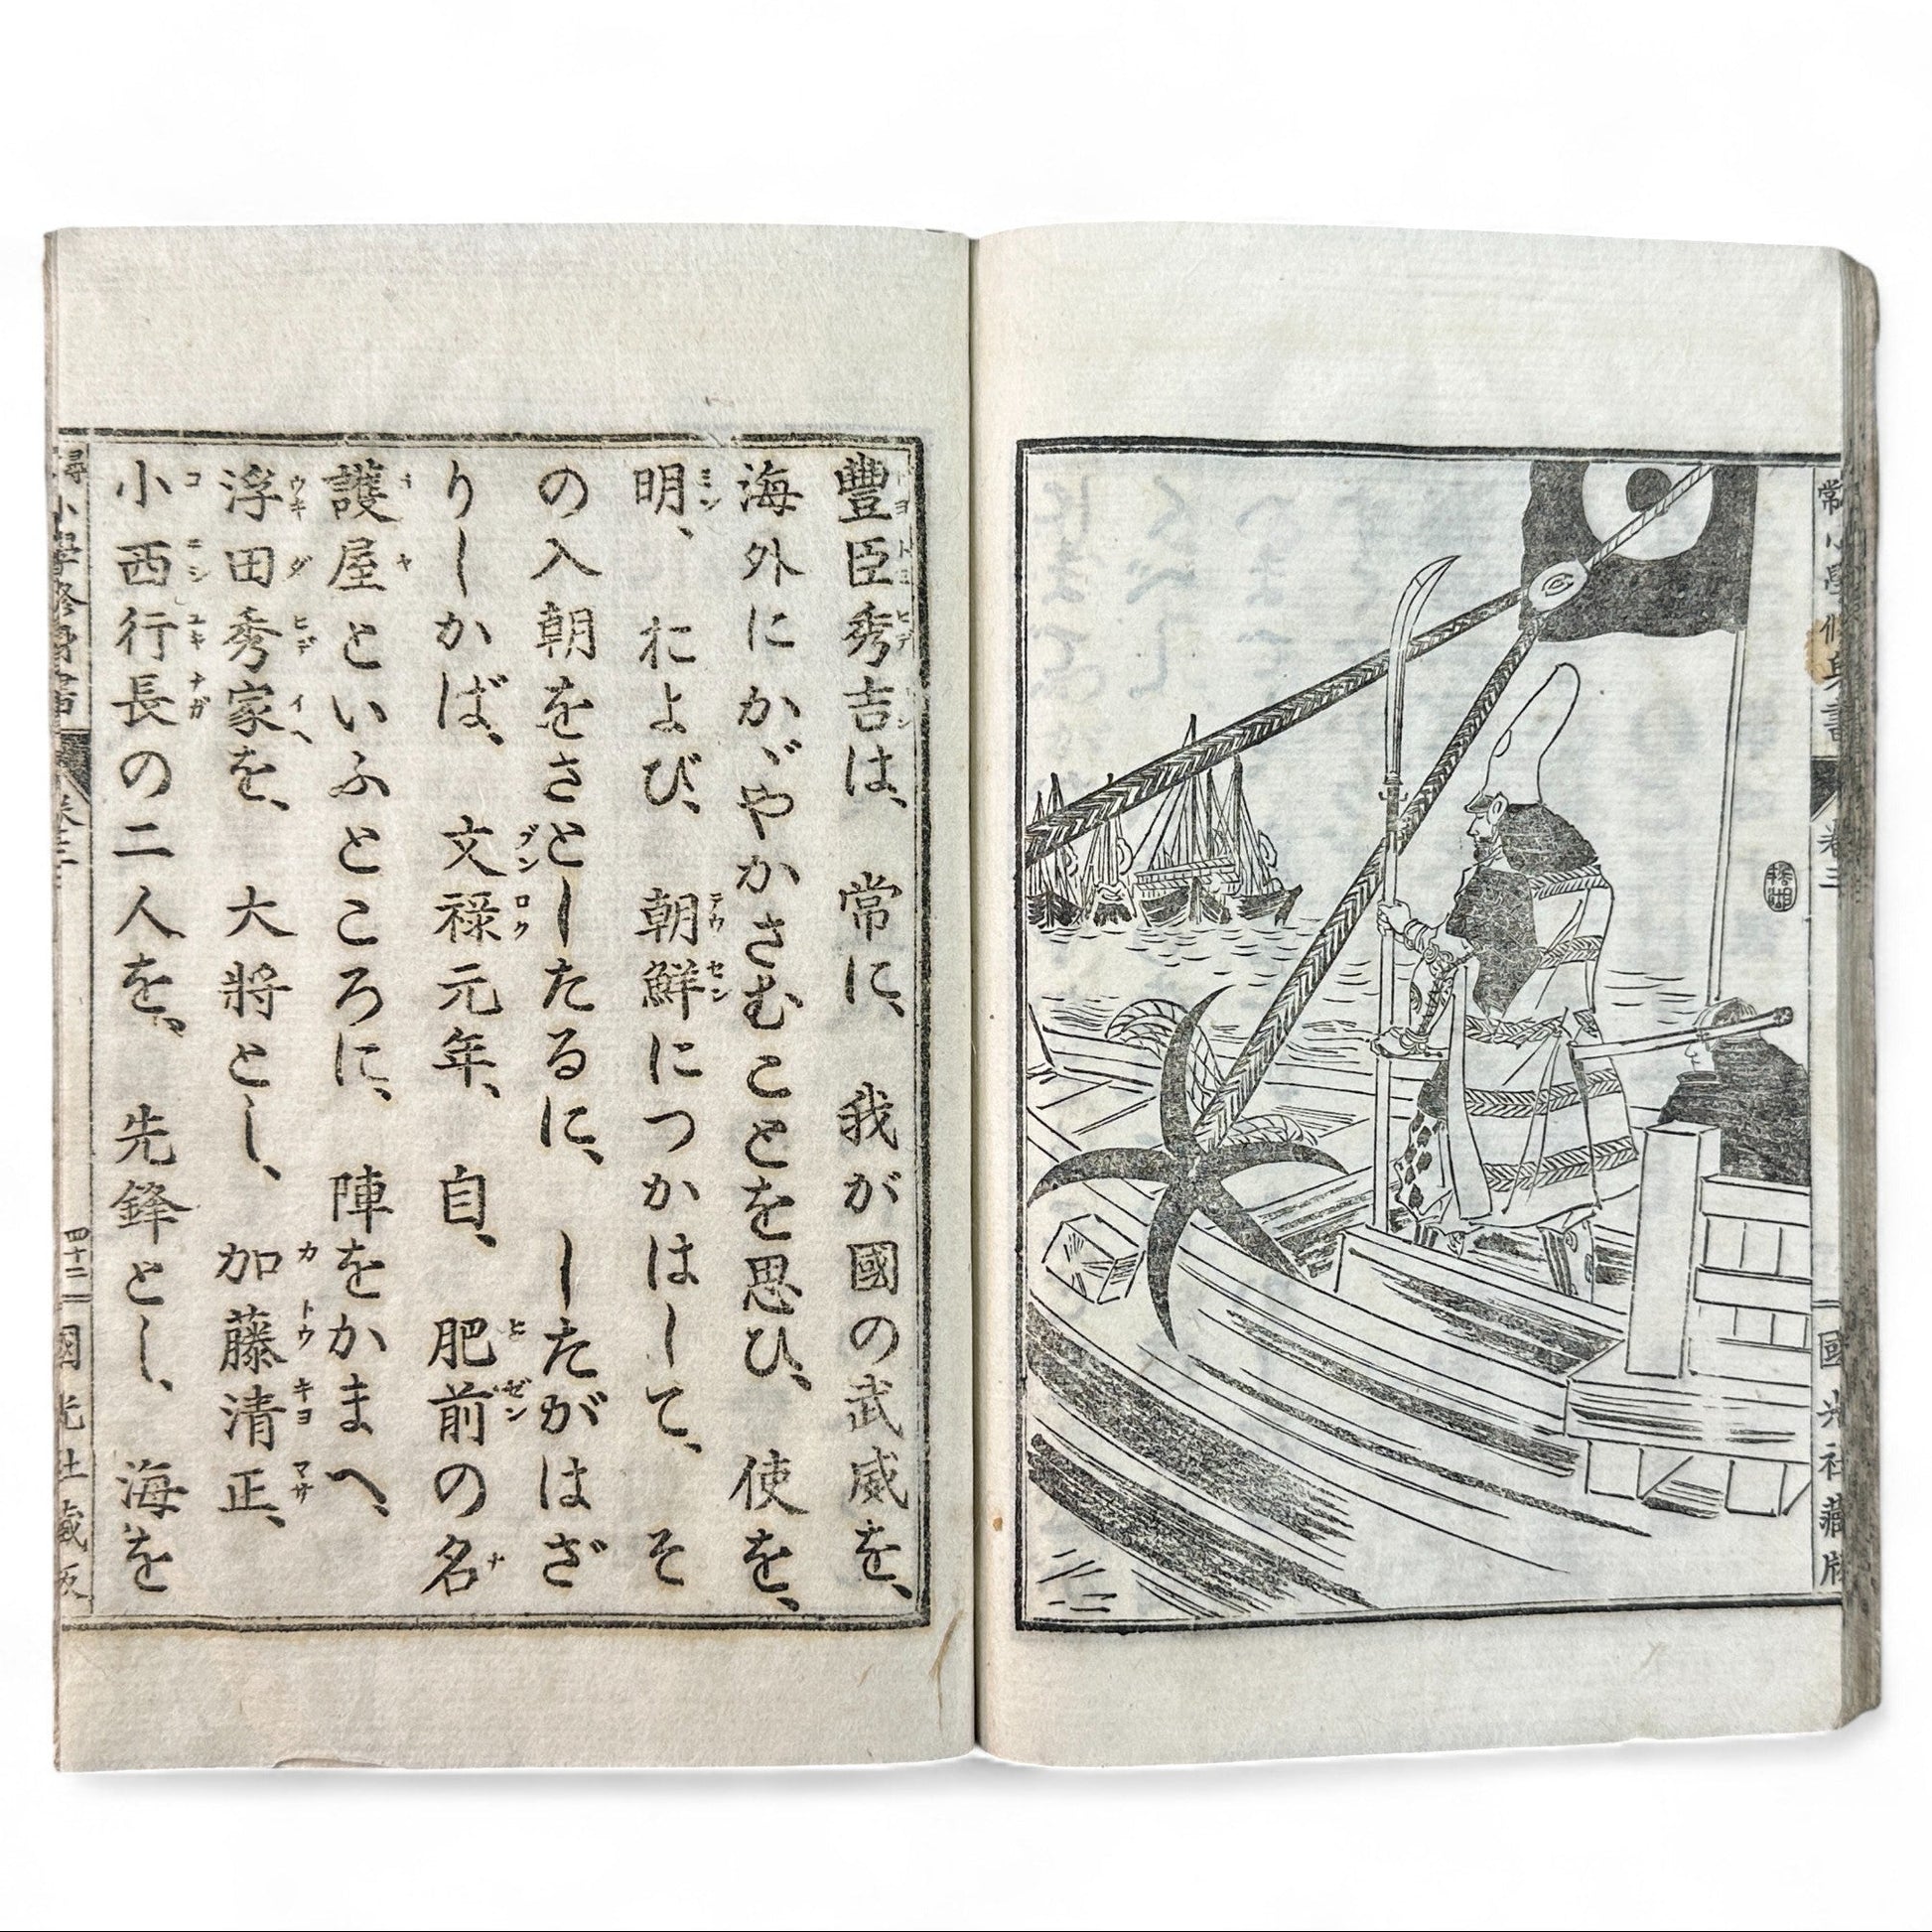 常小學修身書 卷三 國光社藏版
豐臣秀吉は、常に、我が國の武威を、
海外にかゞやかさむことを思ひ、使を、
明、および、朝鮮につかはして、そ
の入朝をさとしたるに、したがはざ
りしかば、文祿元年、自、肥前の名
護屋といふところに、陣をかまへ、
浮田秀家を、大將とし、加藤清正、
小西行長の二人を、先鋒とし、海を
小學修身書 卷三 四十二 國光社藏版